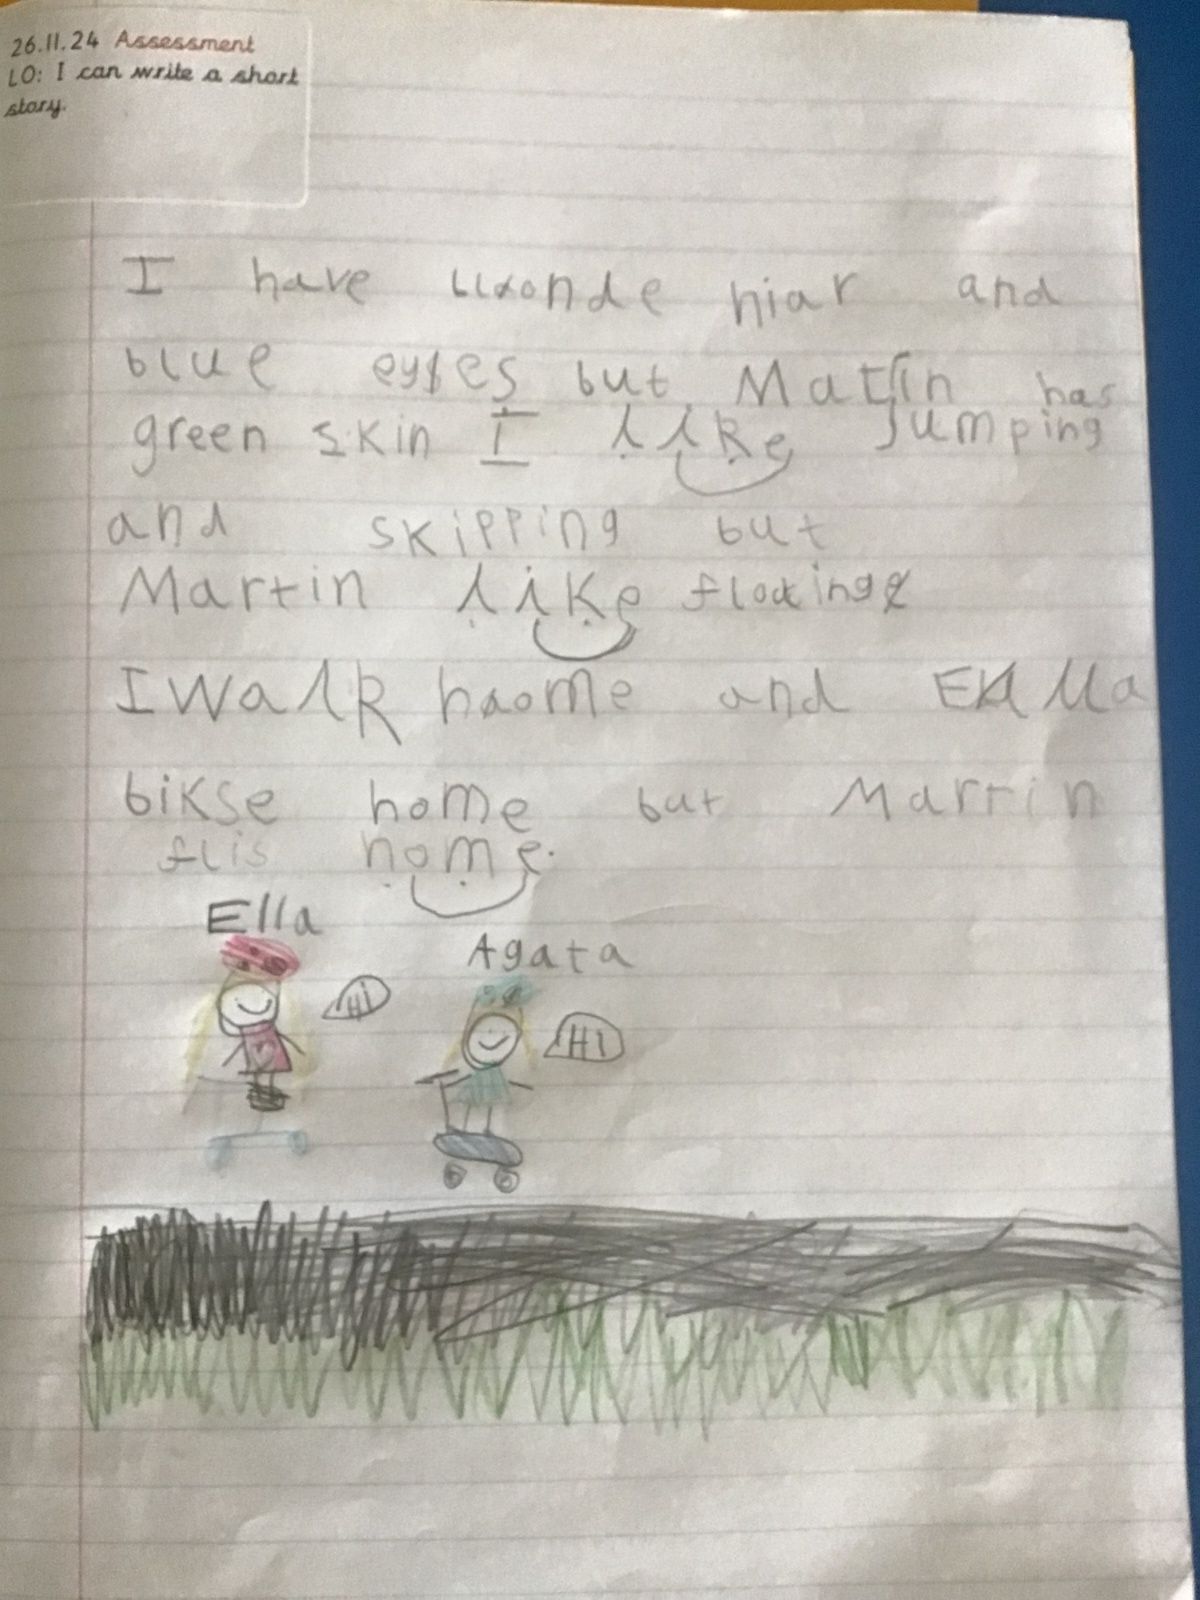 26.11.24 Assessment
LO: I can write a short
story.
I have blonde hiar and
blue eyes but Martin has
green skin I like Jumping
and skipping but
Martin like floating
I walk haome and Ella
bikse home but Martin
flis home.
Ella
Agata
Hi
HI